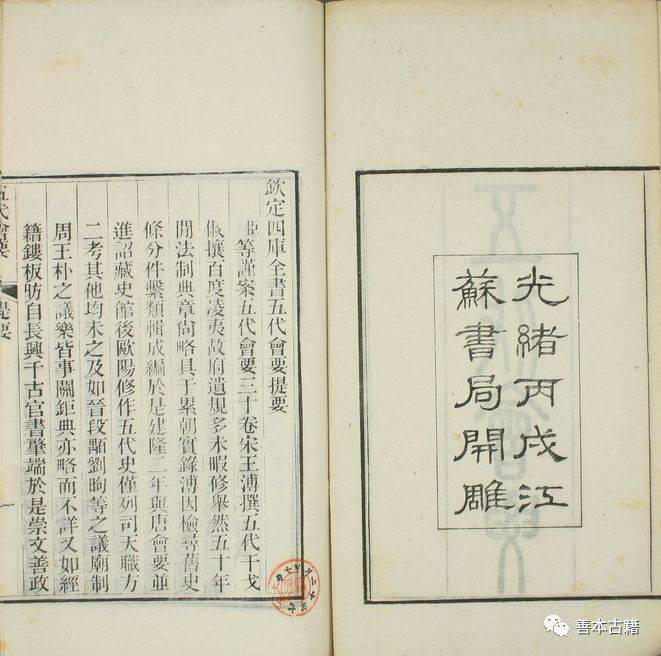 光緒丙戌江
蘇書局開雕
欽定四庫全書五代會要提要
臣等謹案五代會要三十卷宋王溥撰五代干戈
俶擾百度凌夷故府遺規多未暇修舉然五十年
閒法制典章尚略具于累朝實錄溥因檢尋舊史
條分件繫類輯成編於是建隆二年與唐會要並
進詔藏史館後歐陽修作五代史僅列司天職方
二考其他均未之及如晉段顒劉昫等之議廟制
周王朴之議樂皆事關鉅典亦略而不詳又如經
籍鏤板昉自長興千古官書肇端於是崇文善政
五代會要 提要 一
善本古籍